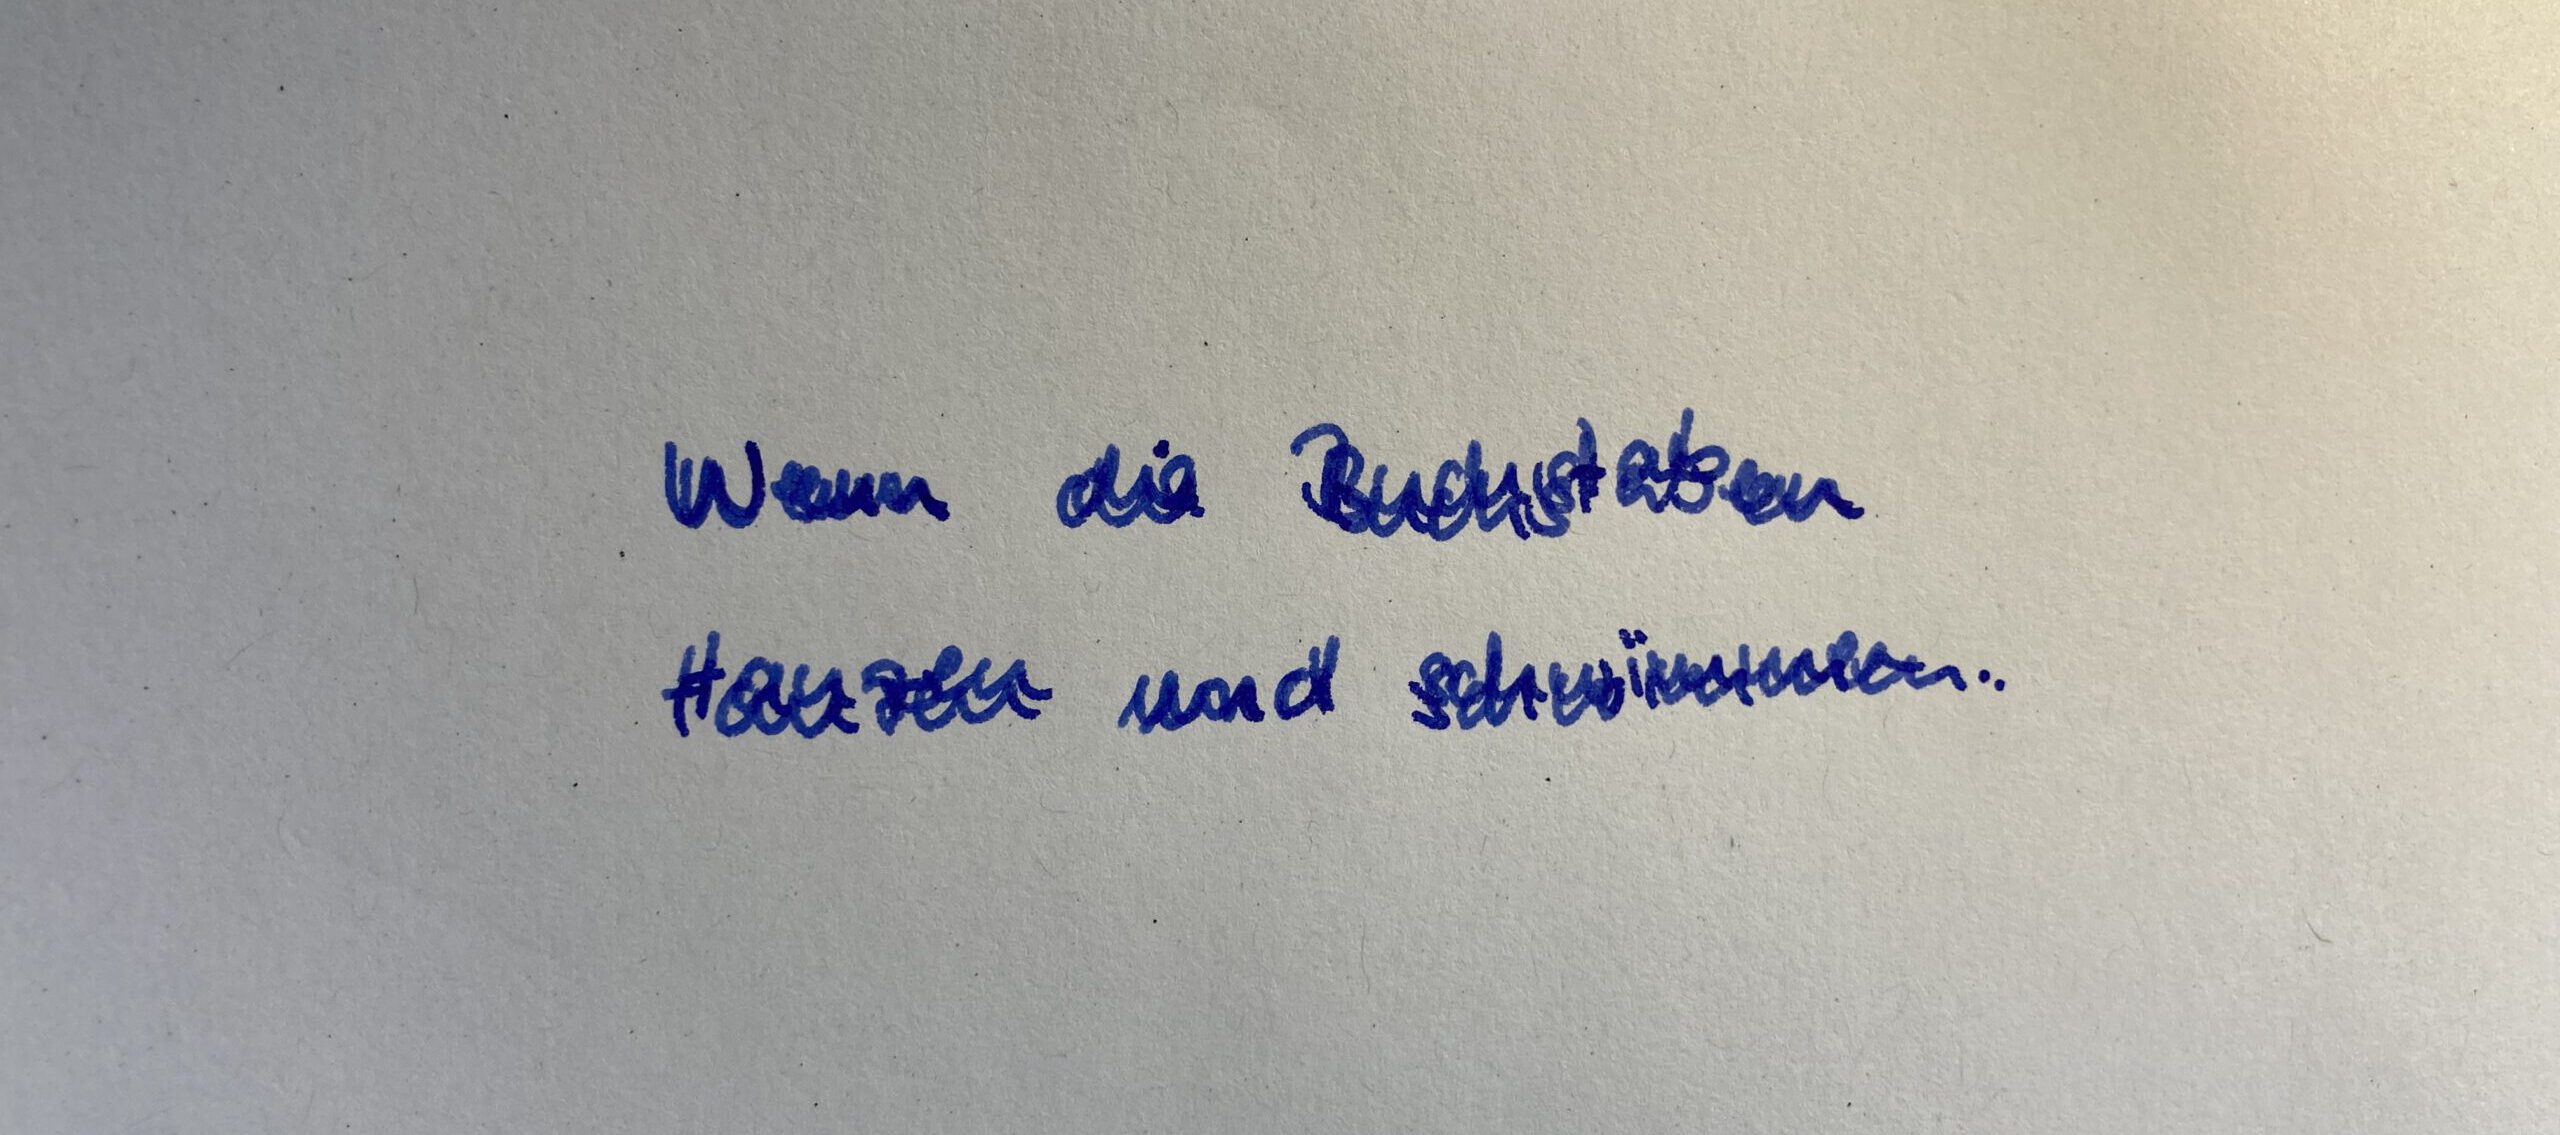 Wenn die Buchstaben
tanzen und schwimmen..